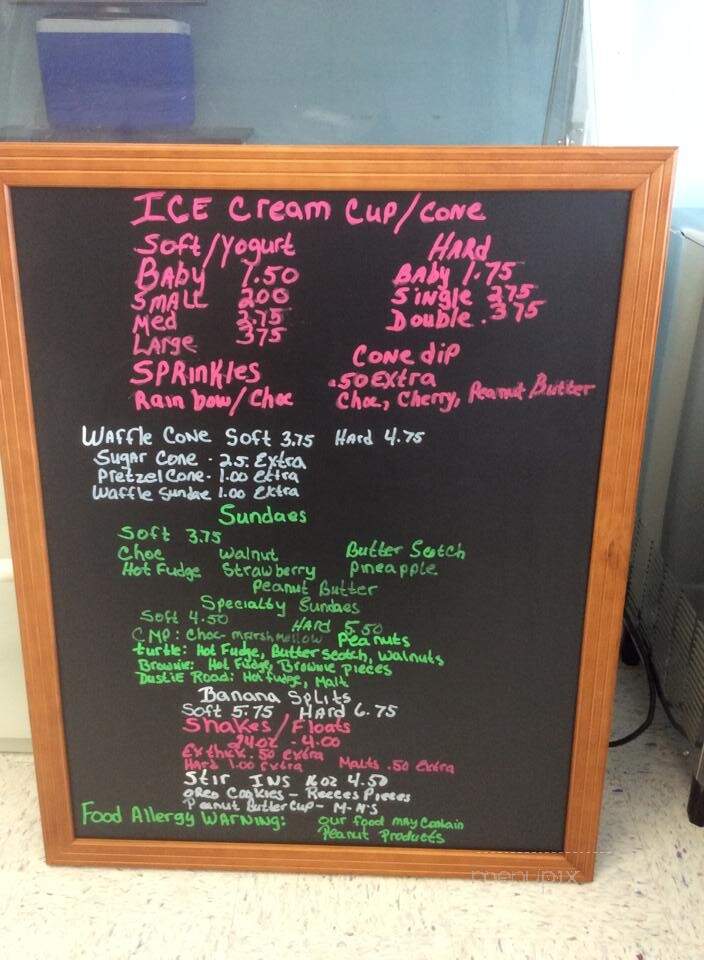 ICE Cream Cup/Cone
Soft/Yogurt HARD
BABY 1.50 BABY 1.75
SMALL 200 Single 275
Med 2.75 Double .375
Large 375
SPRINKles Cone dip
Rainbow/Choc .50 EXtra
Choc, Cherry, Peanut Butter
WAFFle CONe Soft 3.75 Hard 4.75
Sugar Cone - 25. Extra
Pretzel Cone - 1.00 extra
Waffle Sundae 1.00 Extra
Sundaes
Soft 3.75
Choc Walnut Butter Scotch
Hot Fudge Strawberry Pineapple
Peanut Butter
Specialty Sundaes
Soft 4.50 HARD 5.50
CMP: Choc- marshmellow Peanuts
turtle: Hot Fudge, Butterscotch, Walnuts
Brownie: Hot Fudge, Brownie pieces
DustiE Road: Hot fudge, Malt
Banana Splits
Soft 5.75 Hard 6.75
Shakes/Floats
24oz - 4.00
Ex thick .50 extra
Hard 1.00 extra Malts .50 extra
Stir INS 16oz 4.50
oreo Cookies - Reeces Pieces
Peanut Butter Cup - M-N'S
Food Allergy WARNING: our food may Contain
Peanut Products
menupix